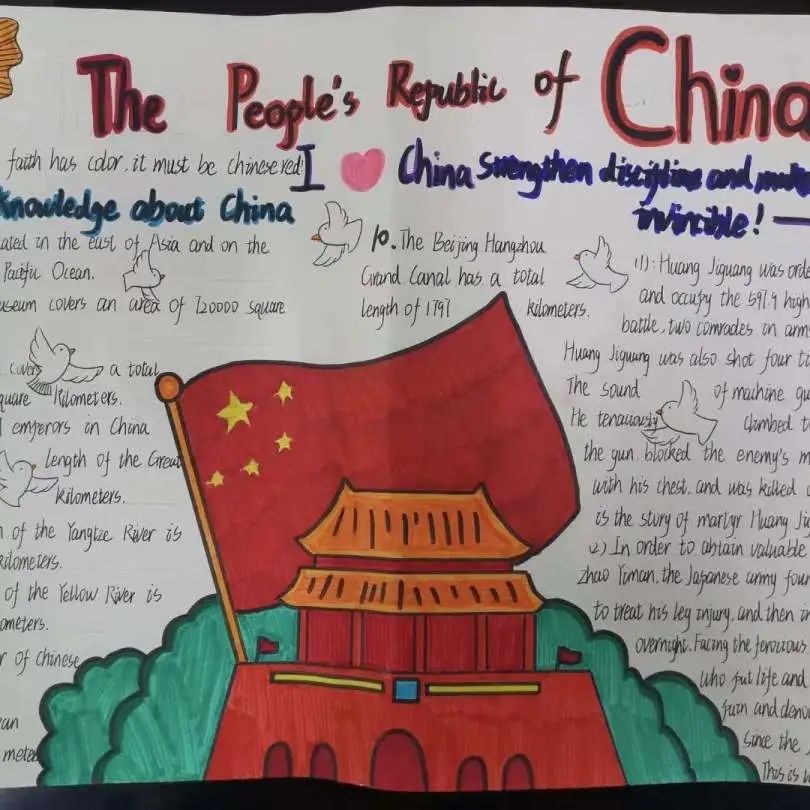 The People's Republic of China
faith has color, it must be chinese red!
I China Strengthen discipline and make
invincible! —
Knowledge about China
ated in the east of Asia and on the
Pacific Ocean.
useum covers an area of 720000 square
covers a total
quare kilometers.
emperors in China
length of the Great
kilometers.
of the Yangtze River is
kilometers.
of the Yellow River is
ometers.
r of Chinese
ean
meters
10. The Beijing Hangzhou
Grand Canal has a total
length of 1797 kilometers.
(1): Huang Jiguang was orde
and occupy the 597.9 high
battle, two comrades in arms
Huang Jiguang was also shot four ti
The sound of machine gu
He tenaciously climbed to
the gun, blocked the enemy's m
with his chest, and was killed
is the story of martyr Huang Jig
2) In order to abtain valuable
Zhao Yiman, the Japanese army foun
to treat his leg injury, and then in
overnight. Facing the ferocious
who put life and
firm and denou
since the
This is w